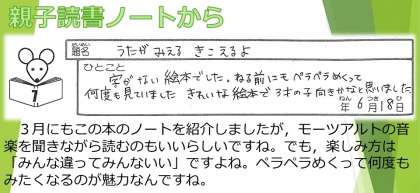 親子読書ノートから
だいめい
題名 うたがみえる きこえるよ
ひとこと
字がない絵本でした。ねる前にもペラペラめくって
何度も見ていました きれいな絵本で3才の子向きかなと思いました
ねん つき ひ
年 6月18日
1
3月にもこの本のノートを紹介しましたが，モーツアルトの音
楽を聞きながら読むのもいいらしいですね。でも，楽しみ方は
「みんな違ってみんないい」ですよね。ペラペラめくって何度も
みたくなるのが魅力なんですね。